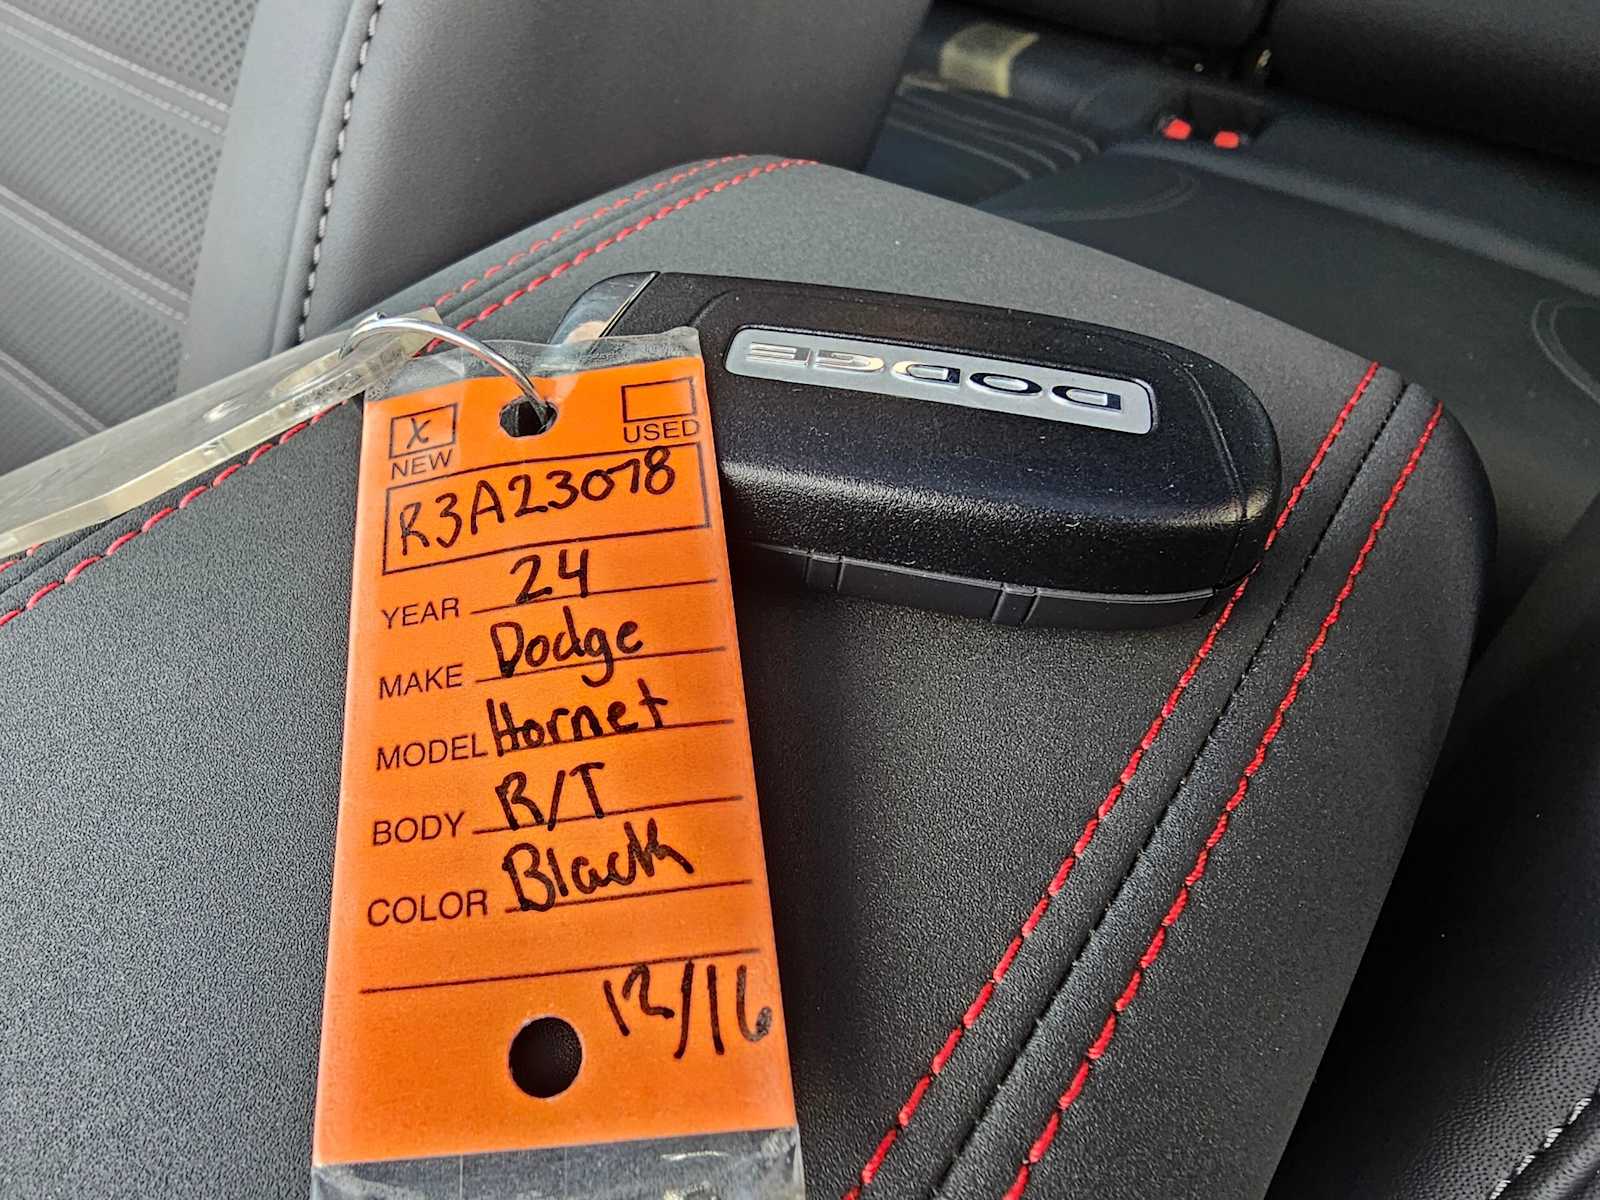 DODGE
X
NEW
USED
R3A23078
YEAR 24
MAKE Dodge
MODEL Hornet
BODY R/T
COLOR Black
12/16